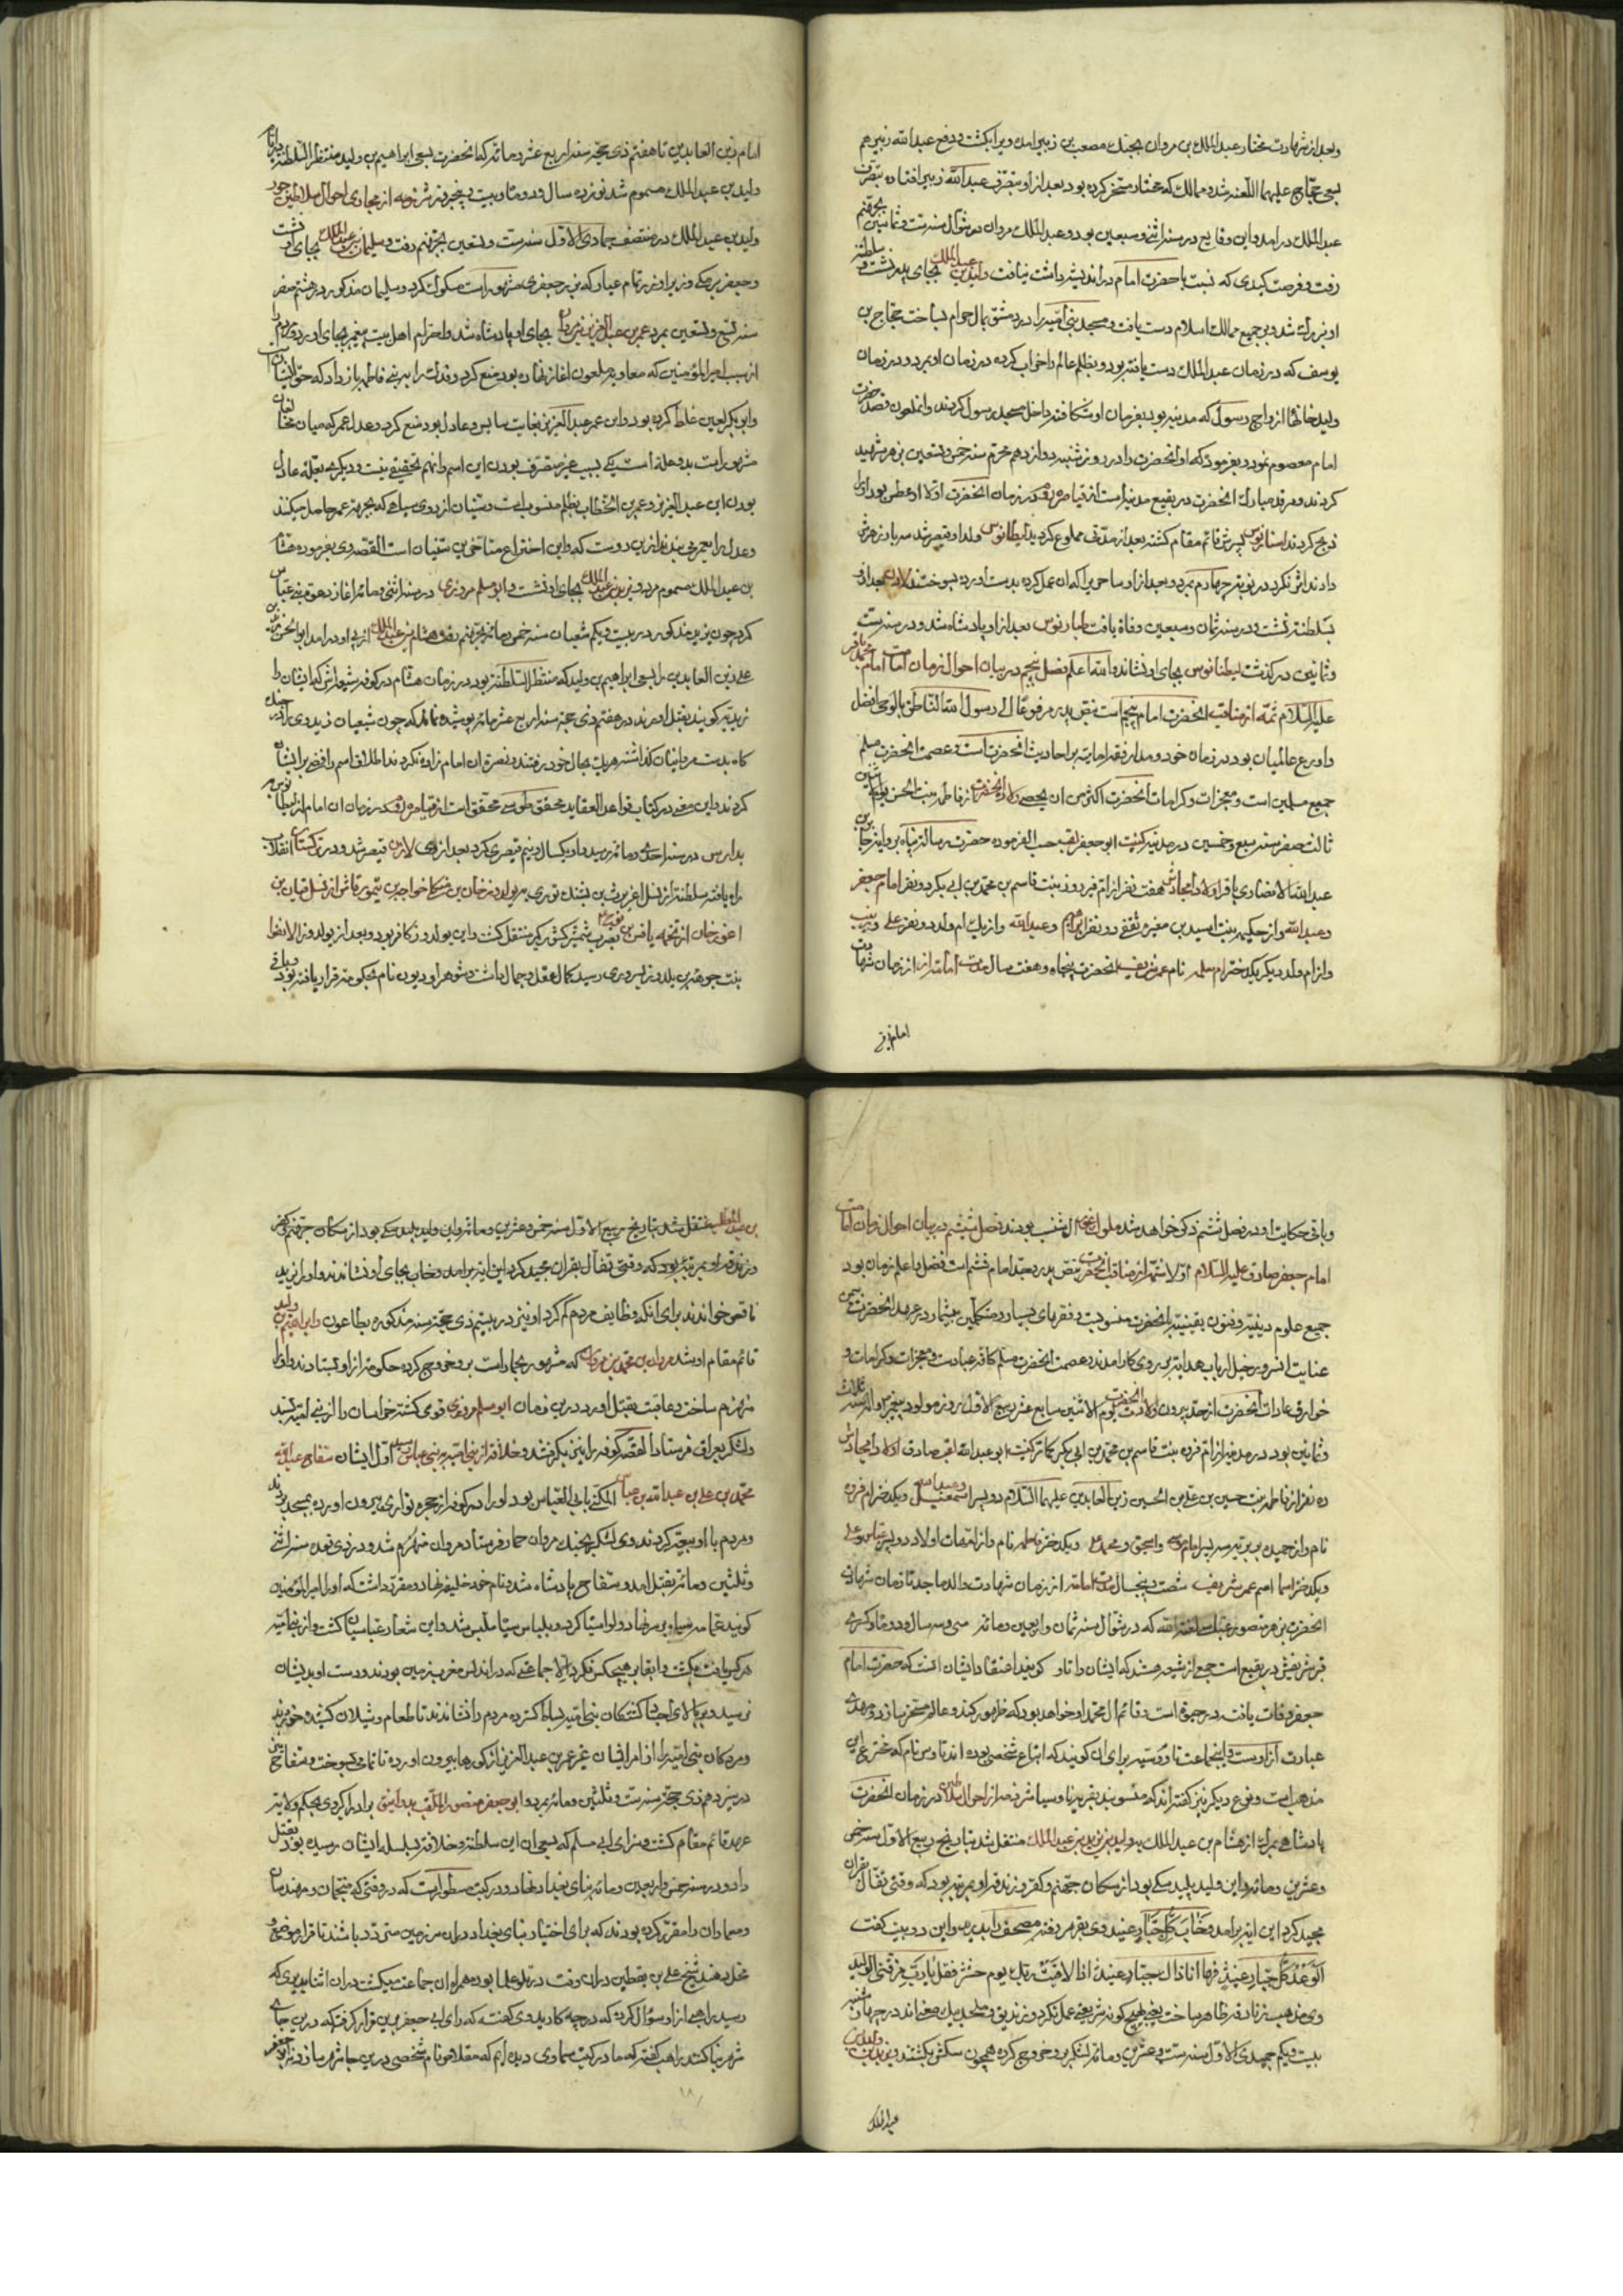 وبعد از شهادت مختار عبد الملک بن مروان بجنک مصعب بن زبیر امد ویرا بکشت ودفع عبد الله زبیر هم
بسعی حجاج علیهما اللعنه شد وممالک که مختار مسخر کرده بود بعد از او بتصرف عبد الله زبیر افتاده بتصرف
عبد الملک در امد واین وقایع در سنه اثنی وسبعین بود وعبد الملک مروان در شوال سنه ست وثمانین بجهنم
رفت وفرصت کیدی که نسبت با حضرت امام در اندیشه داشت نیافت ولید بن عبد الملک بجای پدر نشست و سلطنة
او بزرک شد وبر جمیع ممالک اسلام دست یافت ومسجد بنی امیه را در دمشق بمال حرام بساخت حجاج بن
یوسف که در زمان عبد الملک دست یافته بود وبظلم عالم را خراب کرده در زمان او بمرد ودر زمان
ولید خانها ازواج رسول که مدینه بود بفرمان او شکافته داخل مسجد رسول کردند وانملعون قصد حضرت
امام معصوم نمود وبفرمود که انحضرت را در روز شنبه دوازدهم محرم سنه خمس وتسعین بزهر شهید
کردند ومرقد مبارک انحضرت در بقیع مدینه است از قیاصره روم در زمان انحضرت اولا بود او را
ذبح کردند پسرش قائم مقام کشته بعد از مدتی مخلوع کردید ولد او قیصر شد سه بار زهرش
دادند اثر نکرد در نوبت چهارم بمرد وبعد از او ساحری را که ان عمل کرده بدست اورده بسوختند
بسلطنة نشست ودر سنه ثمان وسبعین وفاة یافت طباریوس بعد از او پادشاه شد ودر سنه ست
وثمانین در کذشت بجای او نشاند والله اعلم فصل پنجم در بیان احوال زمان امامت امام محمد باقر
علیه السلام تتمه از مناقب انحضرت امام پنجم است بنص پدر مرفوعا الی رسول الله الناطق بالوحی افضل
واورع عالمیان بود در زمان خود ومدار فقه امامیه بر احادیث انحضرت است وعصمت انحضرت مسلم
جمیع مسلمین است ومعجزات وکرامات انحضرت اکثر من ان یحصی ولادة انحضرت از فاطمه بنت الحسن یوم
ثالث صفر سنه سبع وخمسین در مدینه کنیت ابو جعفر لقب حسب الفرموده حضرت رسالة پناه بروایة جابر بن
عبد الله الانصاری باقر اولاد امجادش هفت نفر از ام فروه بنت قاسم بن محمد بن ابی بکر دو نفر امام جعفر
وعبد الله واز حکیمه بنت اسید بن مغیره ثقفی دو نفر ابراهیم وعبد الله واز یک ام ولد دو نفر علی وزینب
واز ام ولد دیکر یکدختر ام سلمه نام عمر شریف انحضرت پنجاه وهفت سال مدت امامت از زمان شهادت
امام زین
امام زین العابدین تا هفتم ذی حجه سنه اربع عشر ومائه که انحضرت بسعی ابراهیم بن ولید منتظر السلطنه
ولید بن عبد الملک مسموم شد نوزده سال ودو ماه وبیست وپنجروز شرذمه از مجاری احوال سلاطین جور
ولید بن عبد الملک در منتصف جمادی الاول سنه ست وتسعین بجهنم رفت وسلیمان بن عبد الملک بجای او نشست
وجعفر برمکی وزیر او زر تمام عیار که بزر جعفری مشهور است مسکوک کرد وسلیمان مذکور در هشتم صفر
سنه تسع وتسعین بمرد عمر بن عبد العزیز بن مروان بجای او پادشاه شد واحترام اهل بیت پیغمبر بجای اورد
از سب امیر المؤمنین که معاویه ملعون اغاز نهاده بود منع کرد وفدک را به بنی فاطمه باز داد که حق ایشان است
وابو بکر لعین غلط کرده بود واین عمر عبد العزیز بغایت سایس وعادل بود منع کرد وعدل عمر که میان
مشهور است بدو علة است یکی بسبب غیر متصرف بودن این اسم وانهم تحقیقی نیست ودیکر بعلة عادل
بودن ابن عبد العزیز وعمر بن الخطاب بظلم منسوب است وسنیان از روی سیاهی که بجهة عمر حاصل میکنند
وعدل را بعمر می بندند ازین روست که واین اختراع متاخرین سنیان است القصه وی بفرموده هشام
بن عبد الملک مسموم مرد ویزید بن عبد الملک بجای او نشست وابو مسلم مروزی در سنه اثنی ومائه اغاز دعوة بنی عباس
کرد چون یزید مذکور در بیست ویکم شعبان سنه خمس ومائه بجهنم رفت هشام بن عبد الملک از پی او در امد
علی زین العابدین را بسعی ابراهیم بن ولید که منتظر السلطنة بود در زمان هشام در کوفه شیعه اش که ایشان را
زیدیه کویند بقتل اورند در هفتم ذی حجه سنه اربع عشر ومائه پوشیده نماند که چون شیعیان زید وی را در جنک
کاه بدست مروانیان کذاشته هر یک بحال خود رفتند ونصرة ان امام زاده نکردند اطلاق اسم رافضی بر ایشان
کردند واین معنی در کتاب قواعد العقاید محقق طوسی محقق است از قیاصره روم در زمان ان امام
در سنه احدی ومائه رسید او یکسال ونیم قیصری کرد بعد ازوی لاون قیصر شد ودر ترکستان انقلاب
راه یافته سلطنة از نسل
اغوز خان از تخمه یافث بن نوح بضرب شمشیر کشورکیر منتقل کشت واین یولدوز کافر بود وبعد از یولدوز الانقوا
بنت جوهنه بن یلدوز بسروری رسید کمال عقل وجمال داشت وشوهر او دیون نام بحکومة قرار یافته بود وباقی
وباقی حکایت او در فصل ششم ذکر خواهد شد ملوک فصل ششم در بیان احوال زمان امامت
امام جعفر صادق علیه السلام اولا شمه از مناقب انحضرت بنص پدر وجد امام ششم است افضل واعلم زمان بود
جمیع علوم دینیه وفنون یقینیه بانحضرت منسوبست وفقهای بسیار ومتکلمین بیشمار در عهد انحضرت بیمن
عنایت انسرور خیل ارباب هدایة بر روی کار امدند وعصمت انحضرت مسلم کافه عبادست ومعجزات وکرامات و
خوارق عادات انحضرت از حد بیرون ولادت انحضرت یوم الاثنین سابع عشر ربیع الاول بروز مولود پیغمبر واز سنه ثلاث
وثمانین بود در مدینه از ام فروه بنت قاسم بن محمد بن ابی بکر کما مر کنیت ابو عبد الله لقب صادق اولاد امجادش
ده نفر از فاطمه بنت حسین بن علی بن الحسین زین العابدین علیهما السلام دو پسر اسمعیل وعبد الله ویکدختر ام فروه
نام واز حمیده بربریه سه پسر امام موسی واسحق ومحمد ویکدختر فاطمه نام واز امهات اولاد دو پسر عباس وعلی
ویکدختر اسما اسم عمر شریف شصت وپنجسال مدت امامته از زمان شهادت والد ماجد تا زمان شهادت
انحضرت بزهر منصور عباسی لعنة الله که در شوال سنه ثمان واربعین ومائه سی وسه سال ودو ماه وکسری
قبر شریفش در بقیع است جمعی از شیعه هستند که ایشان را ناووسیه کویند اعتقاد ایشان انست که حضرت امام
جعفر وفات نیافت در حیوة است وقائم ال محمد او خواهد بود که ظهور کند وعالم مسخر سازد ومهدی
عبارت ازاوست واینجماعت ناووسیه برای ان کویند که اتباع شخصی بوده اند ناووس نام که مخترع این
مذهب است ونوع دیکر نیز کفته اند که منسوبند بقریه ناووسیا شرذمه از احوال سلاطین در زمان انحضرت
پادشاهی عرب از هشام بن عبد الملک به ولید بن یزید بن عبد الملک منتقل شد بتاریخ ربیع الاول سنه خمس
وعشرین ومائه واین ولید پلید سکی بود از سکان جهنم وکفر وزندقه او بمرتبه بود که وقتی تفال بقران
مجید کرد این ایه بر امد وخاب کل جبار عنید وی بقهر مصحف را بدرید واین دو بیت کفت
اتوعد کل جبار عنید فها انا ذاک جبار عنید اذا لاقیت ربک یوم حشر فقل یا رب مزقنی الولید
وی مذهب زنادقه ظاهر ساخت یعنی بهیچ کونه شریعتی عمل نکرد وزندیق وملحد بیک معنی اند در چهارشنبه
بیست ویکم جمیدی الاول سنه ست وعشرین ومائه لشکر برو خروج کرده همچون سکش بکشتند ویزید بن ولید بن
عبد الملک
بن عبد الملک منتقل شد بتاریخ ربیع الاول سنه خمس وعشرین ومائه واین ولید پلید سکی بود از سکان جهنم وکفر
وزندقه او بمرتبه بود که وقتی تفال بقران مجید کرد این ایه بر امد وخاب بجای او نشاندند واورا یزید
ناقص خواندند برای انکه وظایف مردم کم کرد او نیز در بیستم ذی حجه سنه مذکوره بطاعون وابراهیم بن ولید
قائم مقام او شد مروان بن محمد بن مروان که مشهور بحمار است برو خروج کرده حکومة از او بستادند واورا
منهزم ساخت وعاقبت بقتل اورد در این زمان ابو مسلم مروزی قوی کشته خراسان را از بنی امیه کشید
ولشکر بعراق فرستاد القصه کوفه را نیز بکرفتند وخلافة از بنی امیه به بنی عباس رسید اول ایشان سفاح عبد الله
محمد بن علی بن عبد الله بن عباس المکنی بابی العباس بود اورا در کوفه از حجره تواری بیرون اورده بمسجد بردند
ومردم با او بیعة کردند وی لشکر بجنک مروان حمار فرستاد مروان منهزم شد ودر ذی قعده سنه اثنی
وثلثین ومائه بقتل امد وسفاح پادشاه شد ونام خود خلیفه نهاد ومقرر داشت که اورا امیر المؤمنین
کویند عمامه سیاه بر سر نهاد ولوا سیاه کرد وبلباس سیاه ملبس شد واین شعار عباسیان کشت واز بنی امیه
هر کس یافت بکشت وابقا بر هیچکس نکرد الا جماعتی که در اندلس مغرب زمین بودند ودست او بدیشان
نرسید وبر بالای اجساد کشتکان بنی امیه بساط کسترده مردم را نشاندند تا طعام وشیلان کشیده خوردند
ومردکان بنی امیه را از امرا ایشان غیر عمر بن عبد العزیز از کورها بیرون اورده تا تمامی بسوخت وسفاح
در سیزدهم ذی حجه سنه ست وثلثین ومائه بمرد وابو جعفر منصور الملقب بدوانیق برادر کردی بحکم ولایة
عهد قائم مقام کشت وسزای ابی مسلم که بسعی ان این سلطنة وخلافة بسلسله ایشان رسیده بود بقتل
داد ودر سنه خمس واربعین ومائه بنای بغداد نهاد ودر کتب مسطور است که در وقتی که منجمان ومهندسان
ومعماران را مقرر کرده بودند که برای اختیار بنای بغداد دران سرزمین متردد باشند تا قرار موضع و
محل دهند شیخ علی بن یقطین دران وقت در تلو علما بوده همراه ان جماعت میکشت دران اثنا بدیری که
رسید راهب از او سؤال کرد که در چه کارید وی کفته که رای ابی جعفر برین قرار کرفته که درین جای
شهر بنا کند راهب کفته که ما در کتب سماوی دیده ایم که مقلاص نام شخصی درین جا شهر سازد نه ابو جعفر
۱۸۱